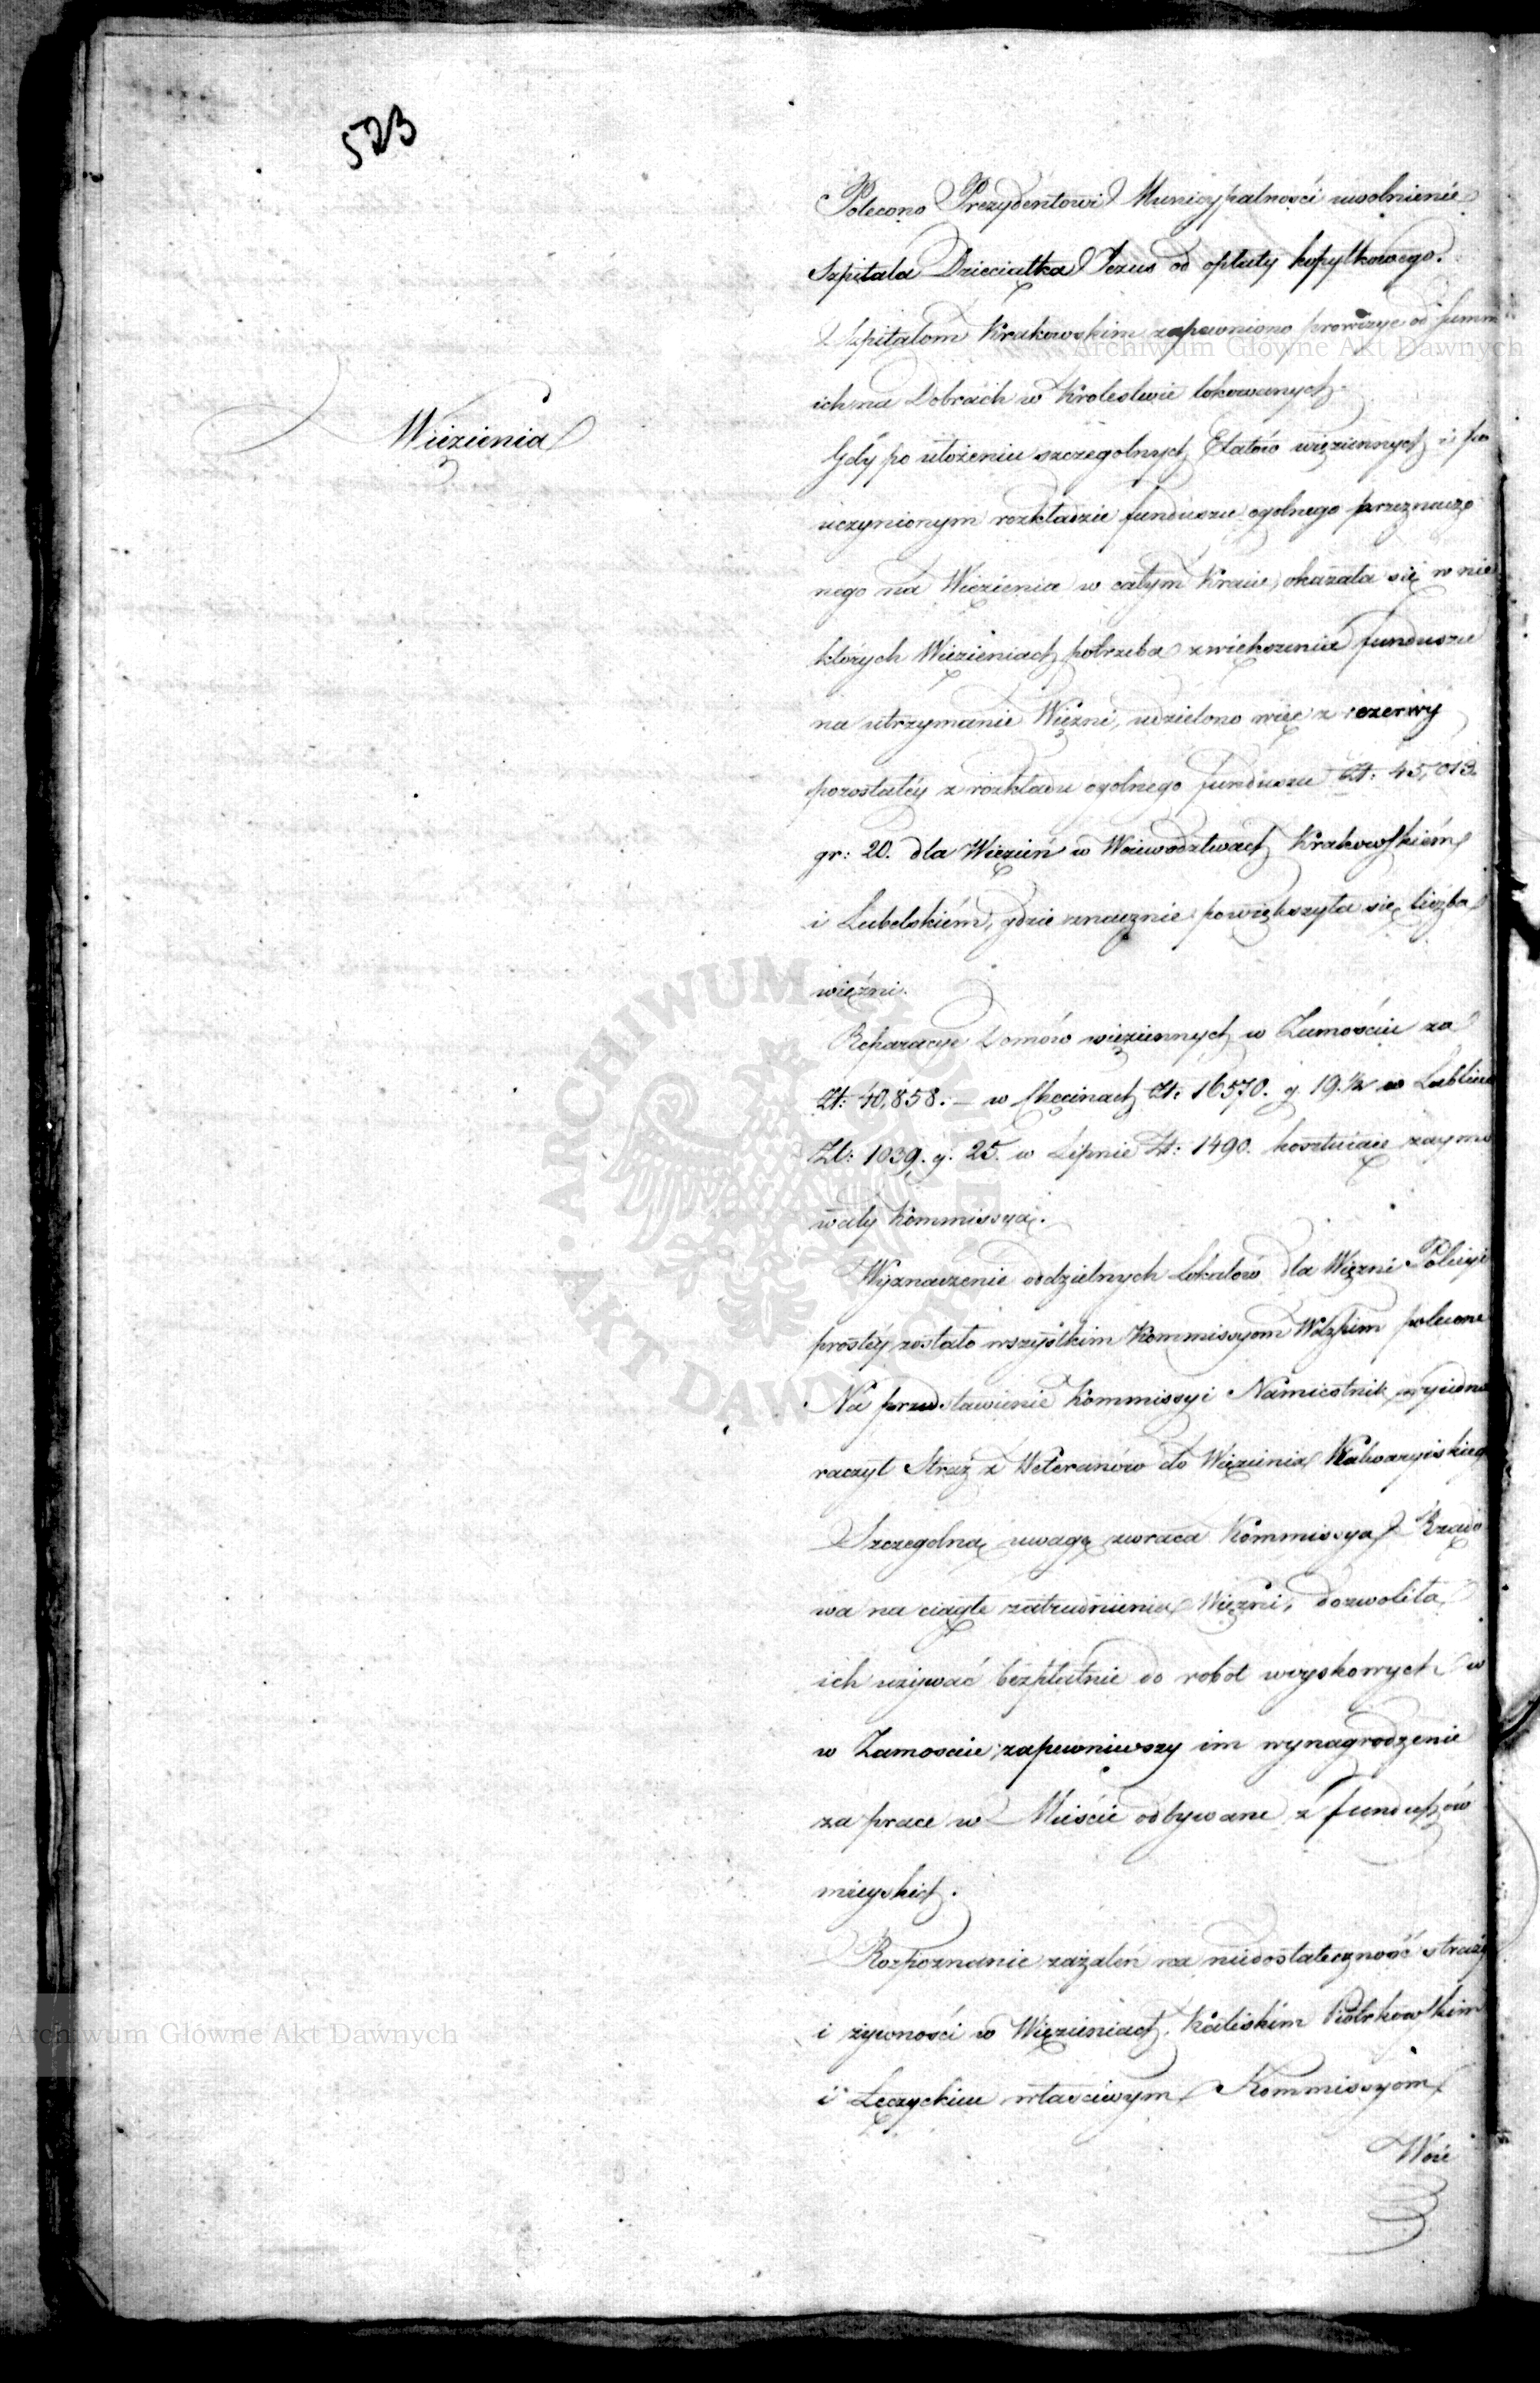 523
Polecono Prezydentowi Municypalności uwolnienie
Szpitala Dzieciątka Jezus od opłaty kopytkowego.
Szpitalom Krakowskim zapewniono prowizye od summ
ich na Dobrach w Krolestwie lokowanych.
Więzienia
Gdy po ułożeniu szczegolnych Etatów więziennych i po
uczynionym rozkładzie funduszu ogolnego przeznaczo
nego na Więzienia w całym Kraiu, okazała się w nie
których Więzieniach potrzeba zwiększenia funduszu
na utrzymanie Więzni, udzielono więc z rezerwy
pozostałéy z rozkładu ogolnego funduszu Zł: 45,013.
gr: 20. dla Więzień w Woiewodztwach Krakowskiém
i Lubelskiém, gdzie znacznie powiększyła się liczba
więzni.
Reparacye Domów więziennych w Zamościu za
Zł: 40,858. – w Chęcinach Zł: 16570. g. 19.½ w Lublinie
Zł: 1039. g. 25. w Lipnie Zł: 1490. kosztuiące zaymo
wały Kommissyą.
Wyznaczenie oddzielnych Lokalów dla Więzni Policyi
prostéy zostało wszystkim Kommissyom Wdzkim polecone
Na przedstawienie Kommissyi Namiestnik wyiedna
raczył Straż z Weteranów do Więzienia Kalwaryiskieg
Szczegolną uwagę zwraca Kommissya Rządo
wa na ciągłe zatrudnienia Więzni, dozwoliła
ich używać bezpłatnie do robot woyskowych w
w Zamościu zapewniwszy im wynagrodzenie
za prace w Mieście odbywane z funduszów
mieyskich.
Rozpoznanie zażaleń na niedostateczność straży
i żywności w Więzieniach Kaliskim Piotrkowskim
i Łęczyckim właściwym Kommissyom
Woie
Archiwum Główne Akt Dawnych
ARCHIWUM GŁÓWNE AKT DAWNYCH
Archiwum Główne Akt Dawnych